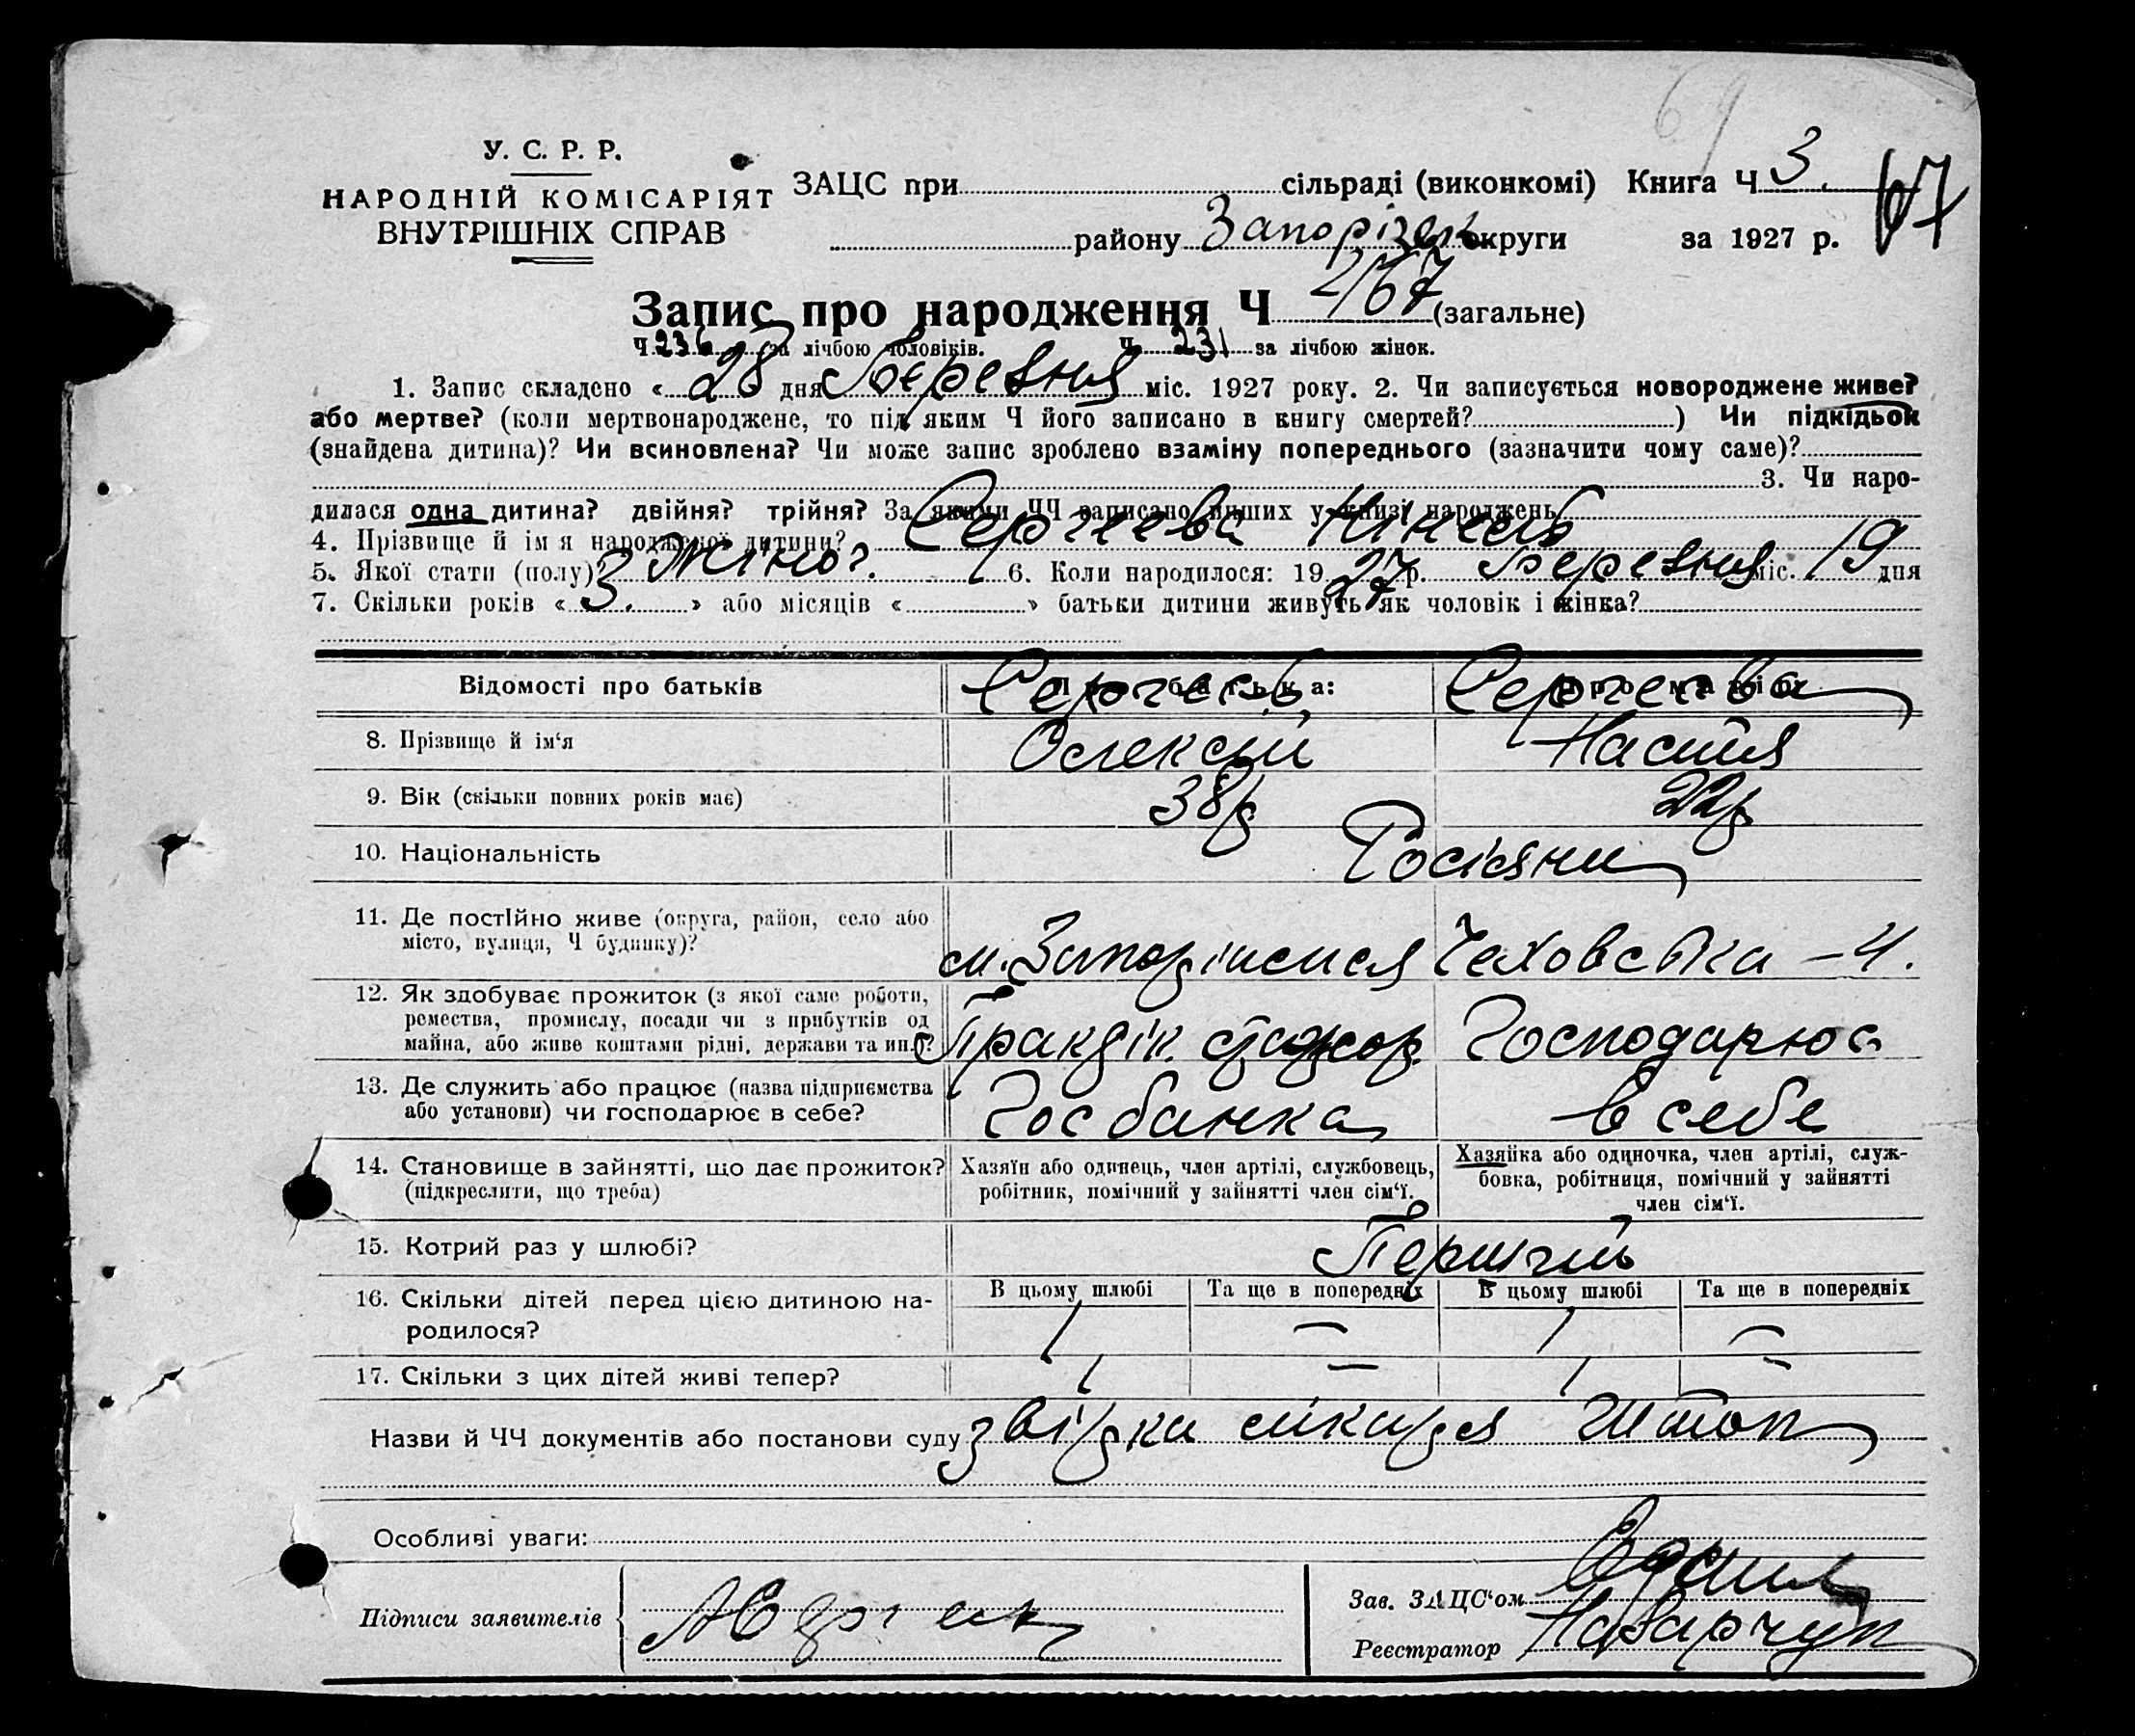 69
У. С. Р. Р.
НАРОДНІЙ КОМІСАРІЯТ
ВНУТРІШНІХ СПРАВ
ЗАЦС при сільраді (виконкомі) Книга Ч 3.
67
району Запорізьк округи за 1927 р.
Запис про народження Ч 467 (загальне)
Ч 236 за лічбою чоловіків. Ч 231 за лічбою жінок.
1. Запис складено « 28 дня Березня міс. 1927 року. 2. Чи записується новороджене живе?
або мертве? (коли мертвонароджене, то під яким Ч його записано в книгу смертей? ) Чи підкідьок
(знайдена дитина)? Чи всиновлена? Чи може запис зроблено взаміну попереднього (зазначити чому саме)?
3. Чи наро-
дилася одна дитина? двійня? трійня? За якими ЧЧ записано инших у книзі народжень
4. Прізвище й ім'я народженої дитини? Сергеева Нінель
5. Якої стати (полу)? Жіноч. 6. Коли народилося: 1927 р. Березня міс. 19 дня
7. Скільки років « 3. » або місяців « » батьки дитини живуть як чоловік і жінка?
Відомості про батьків Про батька: Про матір:
Сергеев Сергеева
8. Прізвище й ім‘я Олексій Настя
9. Вік (скільки повних років має) 38р 22р
10. Національність Росіяни
11. Де постійно живе (округа, район, село або
місто, вулиця, Ч будинку)? м. Запоріжжя Чеховська - 4.
12. Як здобуває прожиток (з якої саме роботи,
ремества, промислу, посади чи з прибутків од
майна, або живе коштами рідні, держави та ин.)? Господарює
13. Де служить або працює (назва підприємства
або установи) чи господарює в себе? Госбанка в себе
14. Становище в зайнятті, що дає прожиток?
(підкреслити, що треба)
Хазяїн або одинець, член артілі, службовець,
робітник, помічний у зайнятті член сім‘ї.
Хазяйка або одиночка, член артілі, служ-
бовка, робітниця, помічний у зайнятті
член сім‘ї.
15. Котрий раз у шлюбі? Перший
16. Скільки дітей перед цією дитиною на-
родилося?
В цьому шлюбі Та ще в попередніх В цьому шлюбі Та ще в попередніх
1 — 1 —
17. Скільки з цих дітей живі тепер? 1 — 1 —
Назви й ЧЧ документів або постанови суду звідка лікаря
Особливі уваги:
Підписи заявителів
Зав. ЗАЦС‘ом
Реєстратор